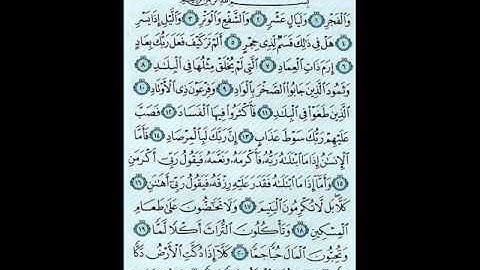 وَٱلْفَجْرِ ١ وَلَيَالٍ عَشْرٍ ٢ وَٱلشَّفْعِ وَٱلْوَتْرِ ٣ وَٱلَّيْلِ إِذَا يَسْرِ
٤ هَلْ فِي ذَٰلِكَ قَسَمٌ لِّذِي حِجْرٍ ٥ أَلَمْ تَرَ كَيْفَ فَعَلَ رَبُّكَ بِعَادٍ
٦ إِرَمَ ذَاتِ ٱلْعِمَادِ ٧ ٱلَّتِي لَمْ يُخْلَقْ مِثْلُهَا فِي ٱلْبِلَـٰدِ ٨
وَثَمُودَ ٱلَّذِينَ جَابُوا۟ ٱلصَّخْرَ بِٱلْوَادِ ٩ وَفِرْعَوْنَ ذِي ٱلْأَوْتَادِ ١٠
ٱلَّذِينَ طَغَوْا۟ فِي ٱلْبِلَـٰدِ ١١ فَأَكْثَرُوا۟ فِيهَا ٱلْفَسَادَ ١٢ فَصَبَّ
عَلَيْهِمْ رَبُّكَ سَوْطَ عَذَابٍ ١٣ إِنَّ رَبَّكَ لَبِٱلْمِرْصَادِ ١٤ فَأَمَّا
ٱلْإِنسَـٰنُ إِذَا مَا ٱبْتَلَىٰهُ رَبُّهُۥ فَأَكْرَمَهُۥ وَنَعَّمَهُۥ فَيَقُولُ رَبِّيٓ أَكْرَمَنِ
١٥ وَأَمَّآ إِذَا مَا ٱبْتَلَىٰهُ فَقَدَرَ عَلَيْهِ رِزْقَهُۥ فَيَقُولُ رَبِّيٓ أَهَـٰنَنِ ١٦
كَلَّا بَل لَّا تُكْرِمُونَ ٱلْيَتِيمَ ١٧ وَلَا تَحَـٰٓضُّونَ عَلَىٰ طَعَامِ
ٱلْمِسْكِينِ ١٨ وَتَأْكُلُونَ ٱلتُّرَاثَ أَكْلًا لَّمًّا ١٩
وَتُحِبُّونَ ٱلْمَالَ حُبًّا جَمًّا ٢٠ كَلَّآ إِذَا دُكَّتِ ٱلْأَرْضُ دَكًّا